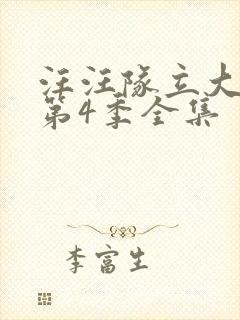 汪汪队立大
第4季全集
李富生